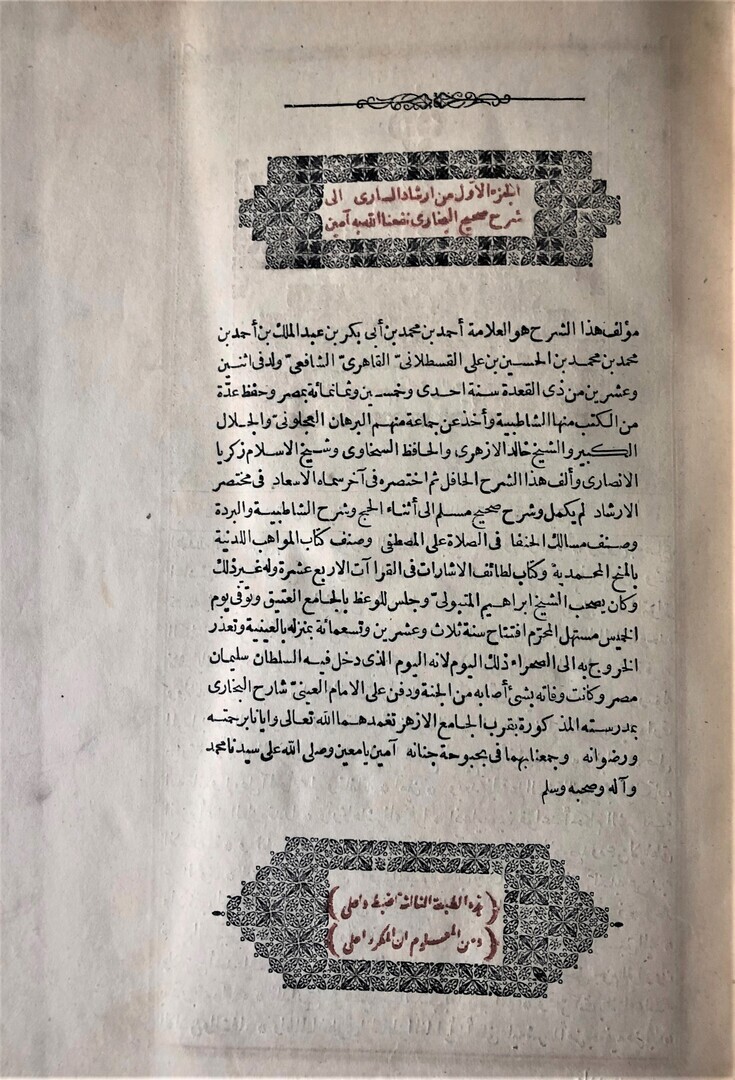 الجزء الاول من ارشاد السارى الى
شرح صحيح البخارى نفعنا الله به آمين
مؤلف هذا الشرح هو العلامة أحمد بن محمد بن أبى بكر بن عبد الملك بن أحمد بن
محمد بن محمد بن الحسين بن على القسطلانىّ القاهرىّ الشافعىّ ولد فى اثنين
وعشرين من ذى القعدة سنة احدى وخمسين وثمانمائة بمصر وحفظ عدّة
من الكتب منها الشاطبية وأخذ عن جماعة منهم البرهان العجلونىّ والجلال
الكبير والشيخ خالد الازهرى والحافظ السخاوى وشيخ الاسلام زكريا
الانصارى وألف هذا الشرح الحافل ثم اختصره فى آخر سماه الاسعاد فى مختصر
الارشاد لم يكمل وشرح صحيح مسلم الى أثناء الحج وشرح الشاطبية والبردة
وصنف مسالك الحنفا فى الصلاة على المصطفى وصنف كتاب المواهب اللدنية
بالمنح المحمدية وكتاب لطائف الاشارات فى القراآت الاربع عشرة وله غير ذلك
وكان يصحب الشيخ ابراهيم المتبولىّ وجلس للوعظ بالجامع العتيق وتوفى يوم
الخميس مستهل المحرّم افتتاح سنة ثلاث وعشرين وتسعمائة بمنزله بالعينية وتعذر
الخروج به الى الصحراء ذلك اليوم لانه اليوم الذى دخل فيه السلطان سليمان
مصر وكانت وفاته بشئ أصابه من الجنة ودفن على الامام العينىّ شارح البخارى
بمدرسته المذكورة بقرب الجامع الازهر تغمدهما الله تعالى وايانا برحمته
ورضوانه وجمعنا بهما فى بحبوحة جنانه آمين يا معين وصلى الله على سيدنا محمد
وآله وصحبه وسلم
(هذه الطبعة الثالثة اضبط واعلى)
(ومن المعلوم ان المكرر احلى)